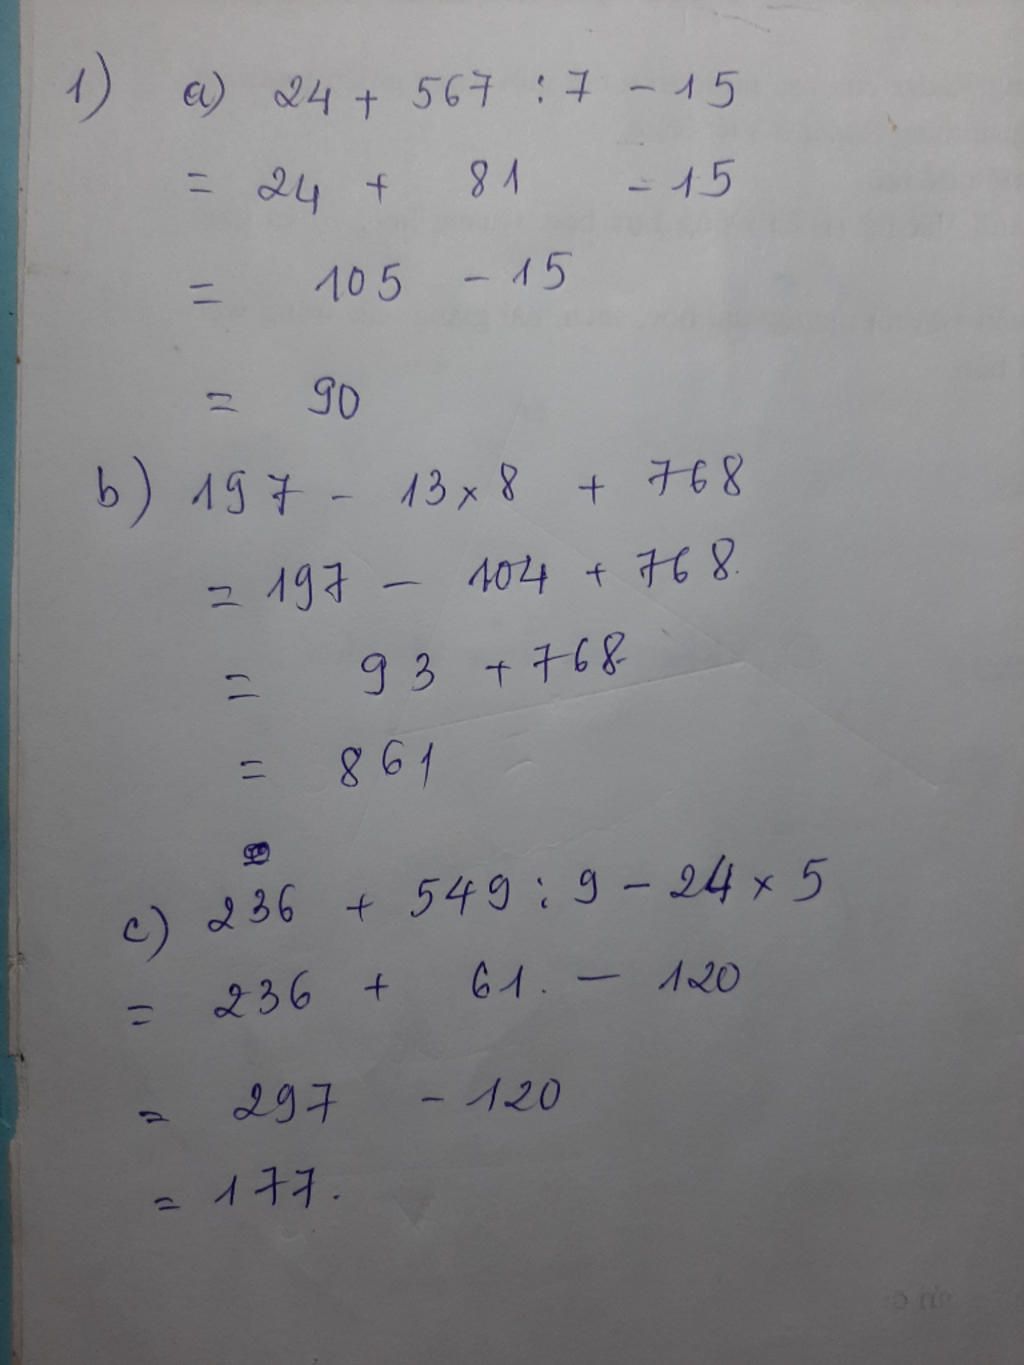 1) a) 24 + 567 : 7 - 15
= 24 + 81 - 15
= 105 - 15
= 90
b) 197 - 13 x 8 + 768
= 197 - 104 + 768
= 93 + 768
= 861
c) 236 + 549 : 9 - 24 x 5
= 236 + 61 - 120
= 297 - 120
= 177.